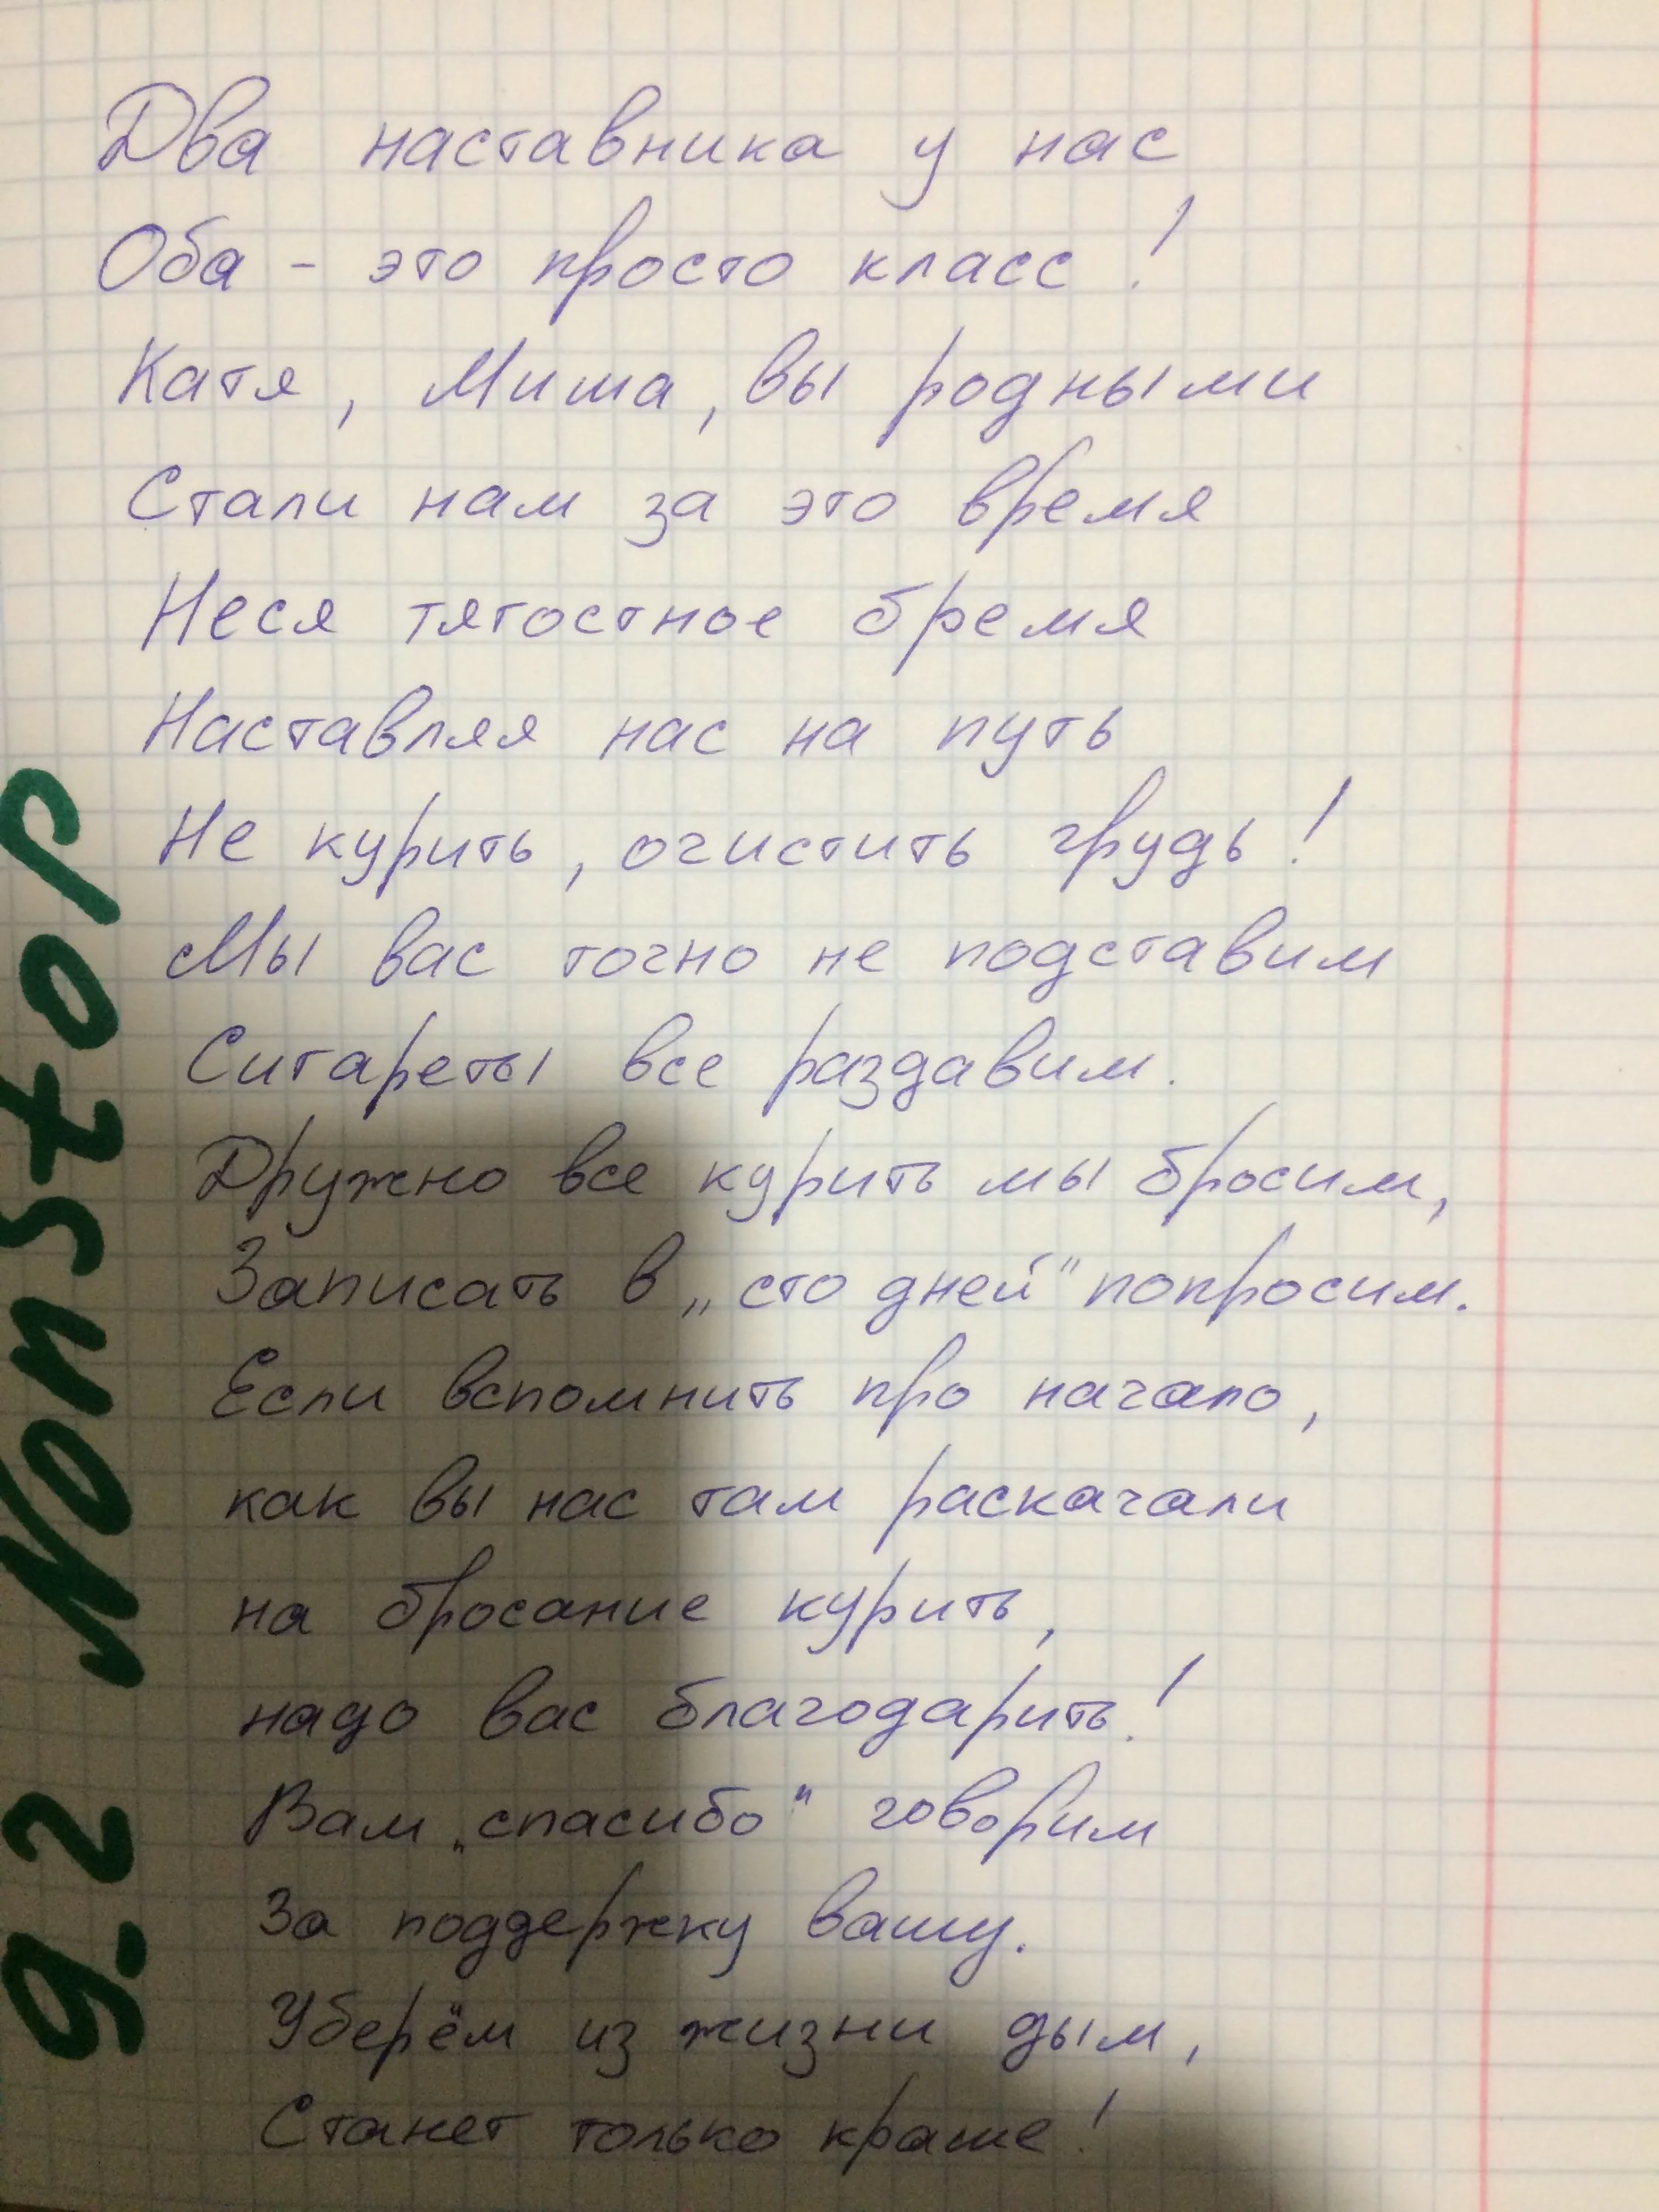 Два наставника у нас
Оба - это просто класс!
Катя, Миша, вы родными
Стали нам за это время
Неся тягостное бремя
Наставляя нас на путь
Не курить, очистить грудь!
Мы вас точно не подставим
Сигареты все раздавим.
Дружно все курить мы бросим,
Записать в „сто дней" попросим.
Если вспомнить про начало,
как вы нас там раскачали
на бросание курить,
надо вас благодарить!
Вам „спасибо" говорим
За поддержку вашу.
Уберём из жизни дым,
Станет только краше!
9.2 Nonstop